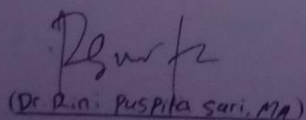 (Dr. Rini Puspita Sari, MA)